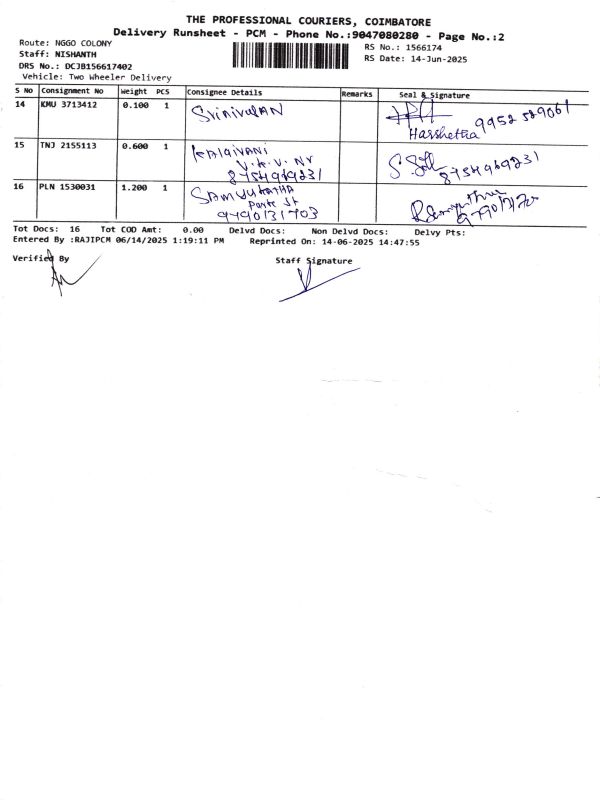 THE PROFESSIONAL COURIERS, COIMBATORE
Delivery Runsheet - PCM - Phone No.:9047080280 - Page No.:2
Route: NGGO COLONY
Staff: NISHANTH
DRS No.: DCJB156617402
Vehicle: Two Wheeler Delivery
RS No.: 1566174
RS Date: 14-Jun-2025
S No Consignment No Weight PCS Consignee Details Remarks Seal & Signature
14 KMU 3713412 0.100 1 Srinivasan
Harshetha 9952529061
15 TNJ 2155113 0.600 1 KALAIVANI
V.K.V. Nr
8754969231
8754969231
16 PLN 1530031 1.200 1 SAMYUKATHA
Park St
9790131703
Tot Docs: 16 Tot COD Amt: 0.00 Delvd Docs: Non Delvd Docs: Delvy Pts:
Entered By :RAJIPCM 06/14/2025 1:19:11 PM Reprinted On: 14-06-2025 14:47:55
Verified By Staff Signature